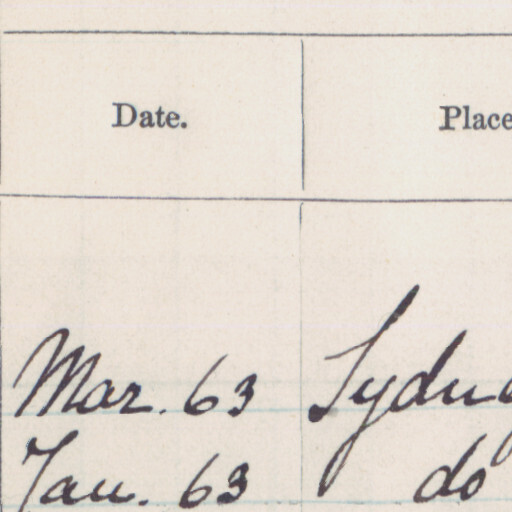 Date. Place
Mar. 63 Sydn
Jan. 63 do